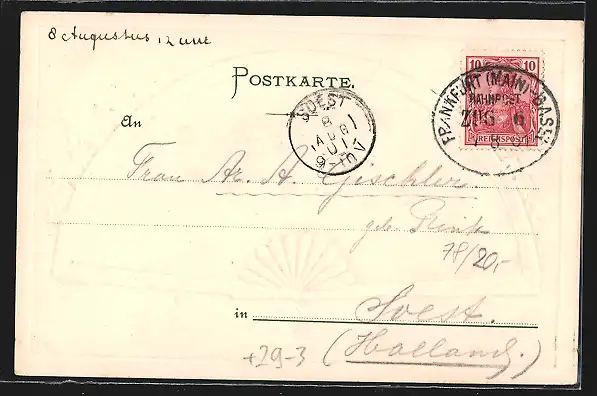 8 Augustus 12 uur
POSTKARTE.
10 10
REICHSPOST
FRANKFURT (MAIN)-BASEL
BAHNPOST
ZUG 6
SOEST
8
AUG
01
9-10V
An
Frau Ar. A. Geschler
geb. Rink
78/20,-
in Soest.
(Holland.)
+29-3